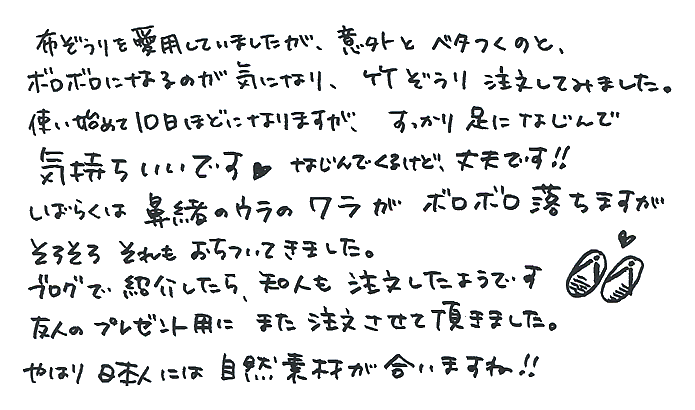 布ぞうりを愛用していましたが、意外と ベタつくのと、
ボロボロになるのが 気になり、 竹ぞうり 注文してみました。
使い始めて 10日ほどになりますが、 すっかり 足に なじんで
気持ちいいです♥ なじんでくるけど、丈夫です!!
しばらくは 鼻緒のウラの ワラが ボロボロ落ちますが
そろそろ それも おちついてきました。
ブログで 紹介したら、知人も 注文したようです
友人の プレゼント用に また 注文させて頂きました。
やはり 日本人には 自然素材が 合いますね!!